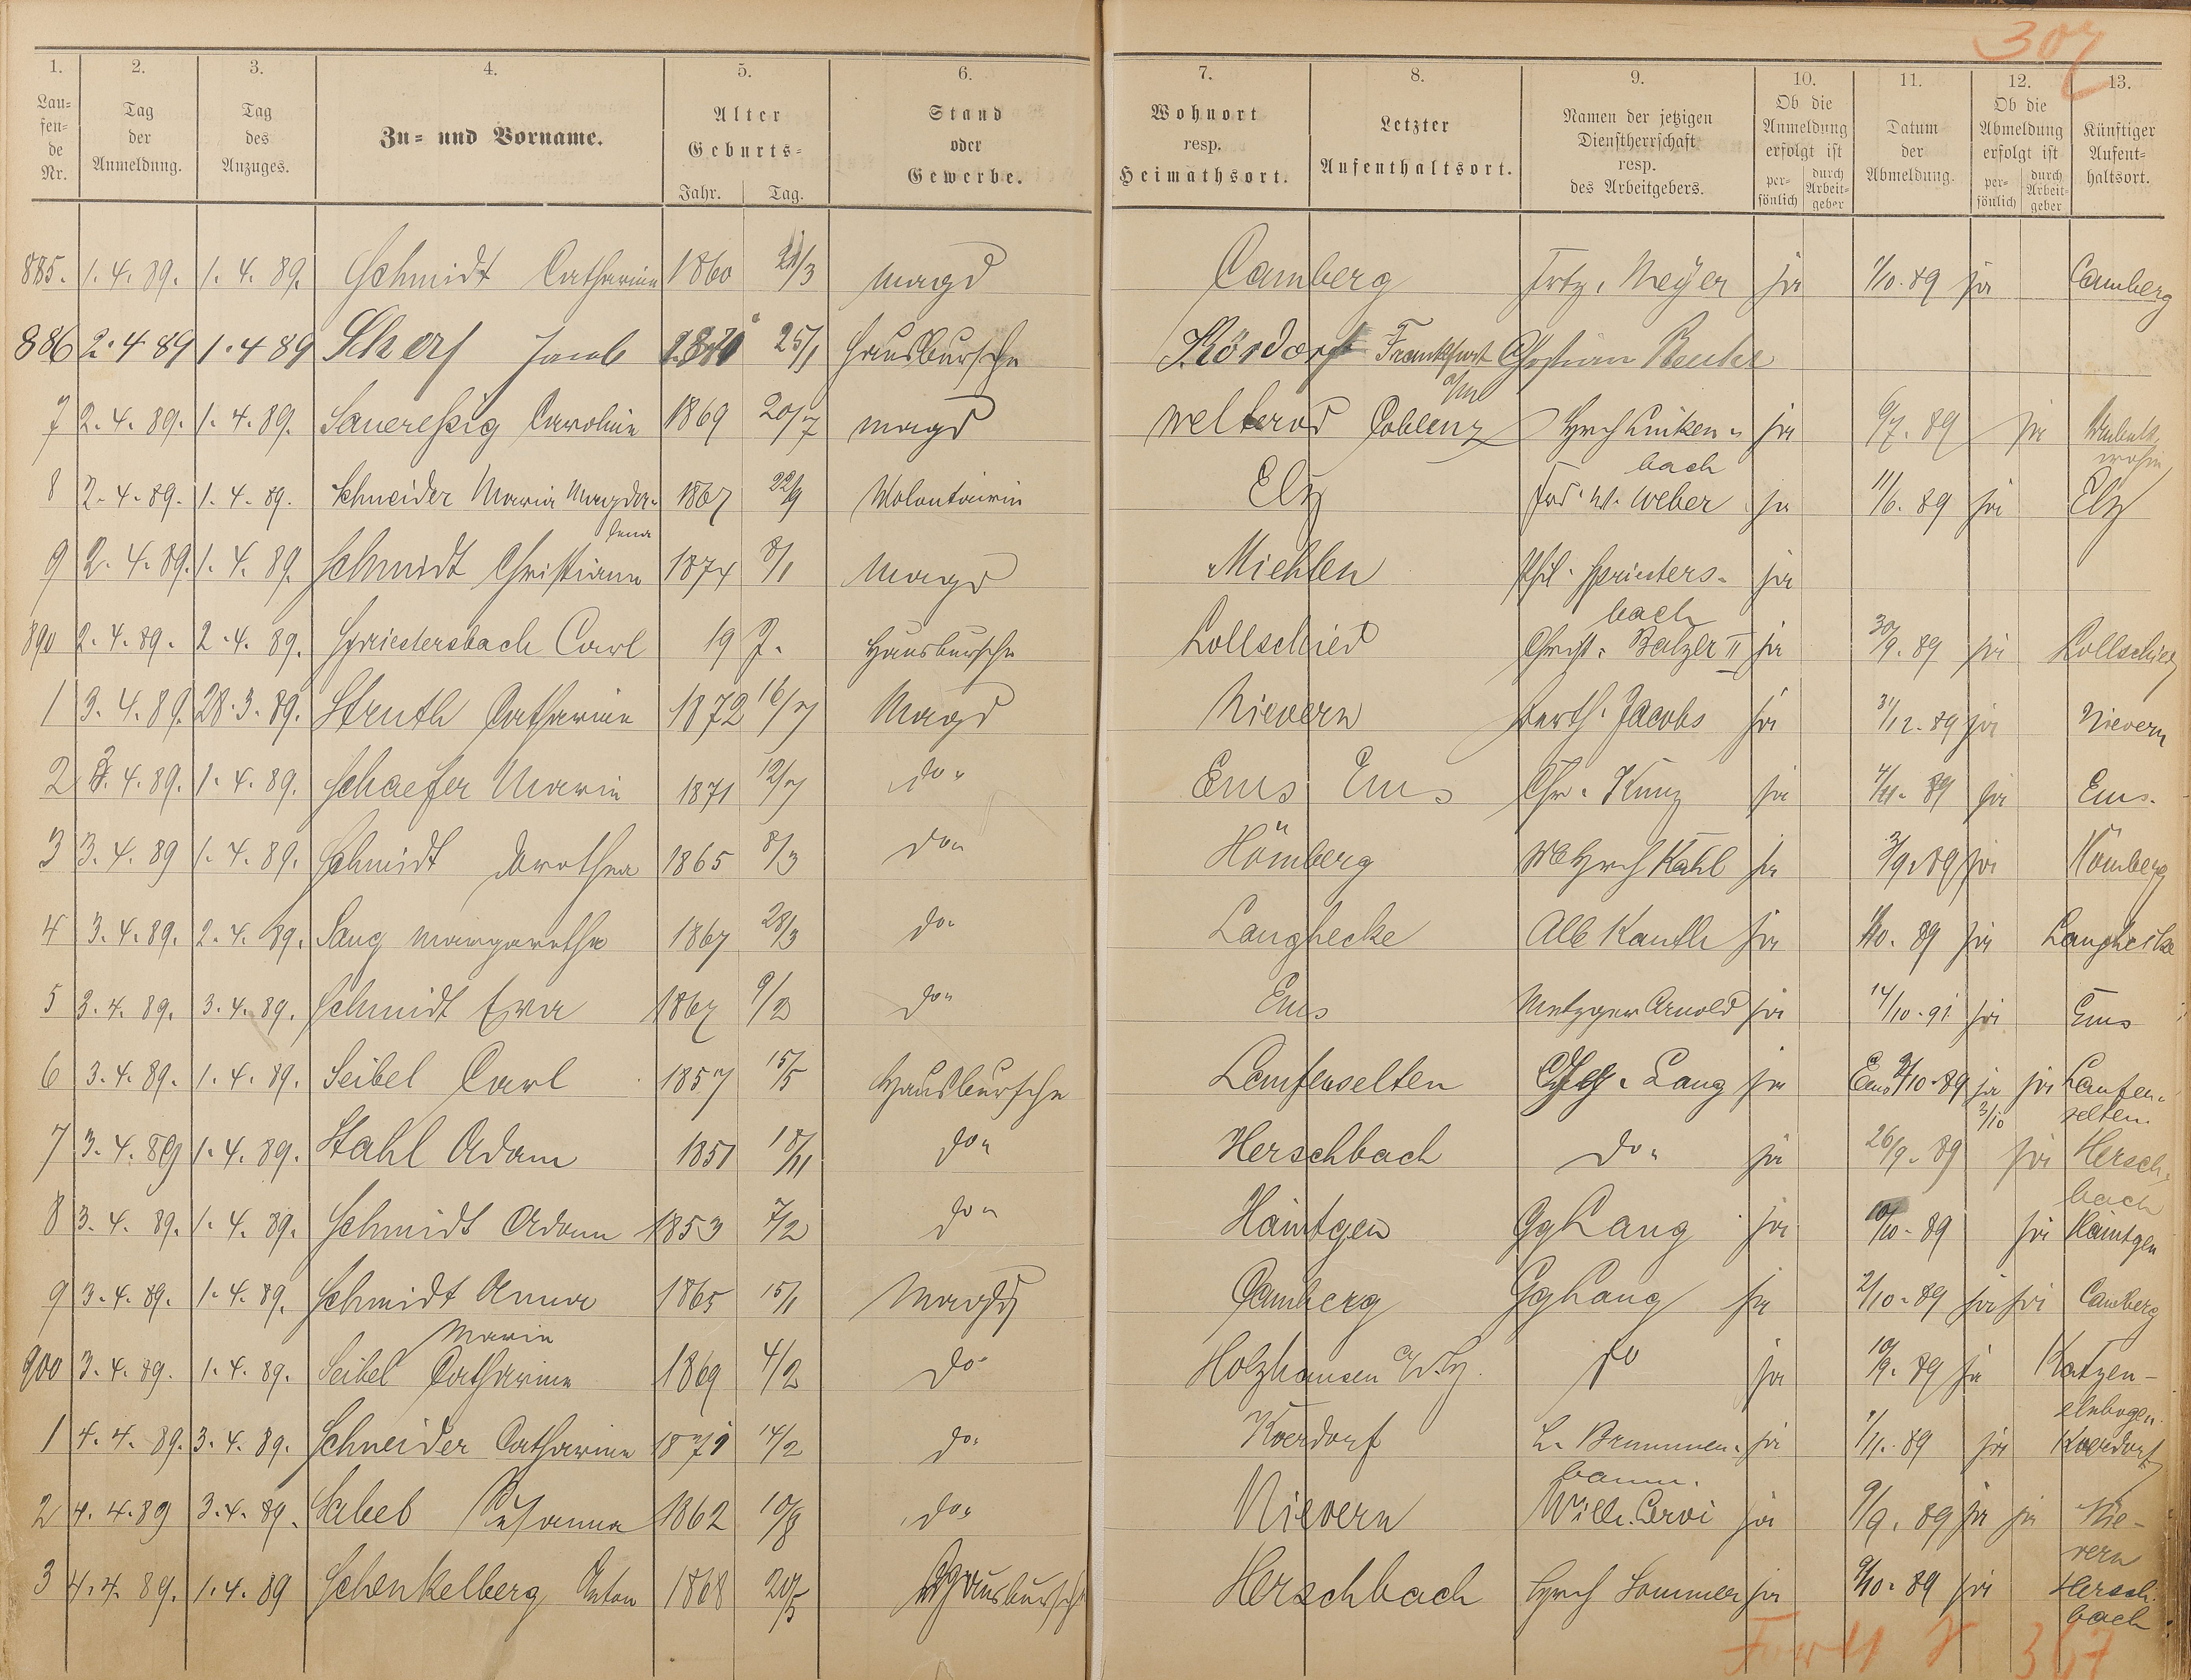 307
1. 2. 3. 4. 5. 6. 7. 8. 9. 10. 11. 12. 13.
Lau=fen=de Nr. Tag der Anmeldung. Tag des Anzuges. Zu= und Vorname. Alter Geburts= Jahr. Tag. Stand oder Gewerbe. Wohnort resp. Heimathsort. Letzter Aufenthaltsort. Namen der jetzigen Dienstherrschaft resp. des Arbeitgebers. Ob die Anmeldung erfolgt ist per=sönlich durch Arbeit=geber Datum der Abmeldung. Ob die Abmeldung erfolgt ist per=sönlich durch Arbeit=geber Künftiger Aufent=haltsort.
885. 1.4.89. 1.4.89. Schmidt Catharine 1860 21/3 Magd Camberg Meyer ja 1/10.89 ja Camberg
886 2.4 89 1.4 89 Scherf Jacob 25/1 Hausbursche Kördorf Frankfurt a/M Christian
7 2.4.89. 1.4.89. Saueressig Caroline 1869 20/7 Magd Welterod Coblenz Hrch Linken=bach ja 6/7.89 ja
8 2.4.89. 1.4.89. Schneider Maria Magda=lena 1867 22/9 Volontairin Elz W. Weber ja 11/6.89 ja Elz
9 2.4.89. 1.4.89. Schmidt Christiane 1874 8/1 Magd Miehlen Phil. Spriesters=bach ja
890 2.4.89. 2.4.89. Spriestersbach Carl 19 J. Hausbursche Lollschied Christ. Balzer II ja 30/9.89 ja Lollschied
1 3.4.89. 28.3.89. Struth Catharine 1872 16/7 Magd Nievern Berth. Jacobs ja 31/12.89 ja Nievern
2 3.4.89. 1.4.89. Schaefer Marie 1871 12/7 do. Ems Ems Chr. Kunz ja 4/11.89 ja Ems.
3 3.4.89 1.4.89. Schmidt Dorothea 1865 8/3 do. Hömberg Hrch Kahl ja 3/9.89 ja Hömberg
4 3.4.89. 2.4.89. Sang Margarethe 1867 28/3 do. Langhecke Alb Kauth ja 1/10.89 ja Langhecke
5 3.4.89. 3.4.89. Schmidt Eva 1867 9/2 do. Ems Metzger Arnold ja 14/10.91 ja Ems
6 3.4.89. 1.4.89. Seibel Carl 1857 15/5 Hausbursche Laufenselten Gg. Lang ja Ems 2/10.89 ja 3/10 ja Laufen=selten.
7 3.4.89 1.4.89. Stahl Adam 1851 18/11 do. Herschbach do. ja 26/9.89 ja Hersch=bach
8 3.4.89. 1.4.89. Schmidt Adam 1853 7/2 do. Haintgen Gg Lang ja 10/10.89 ja Haintgen
9 3.4.89. 1.4.89. Schmidt Anna Maria 1865 15/1 Magd Camberg Gg Lang ja 2/10.89 ja ja Camberg
900 3.4.89. 1.4.89. Seibel Catharine 1869 4/2 do. Holzhausen do ja 10/9.89 ja Katzen-elnbogen.
1 4.4.89. 3.4.89. Schneider Catharine 1871 14/2 do. Koerdorf L. Brummen=baum. ja 1/11.89 ja Koerdorf
2 4.4.89 3.4.89. Sabel Susanna 1862 10/8 do. Nievern Wilh. Corvi ja 9/9.89 ja ja Nie-vern
3 4.4.89. 1.4.89 Schenkelberg Anton 1868 20/5 Hausbursche Herschbach Hrch Sommer ja 9/10.89 ja Hersch=bach